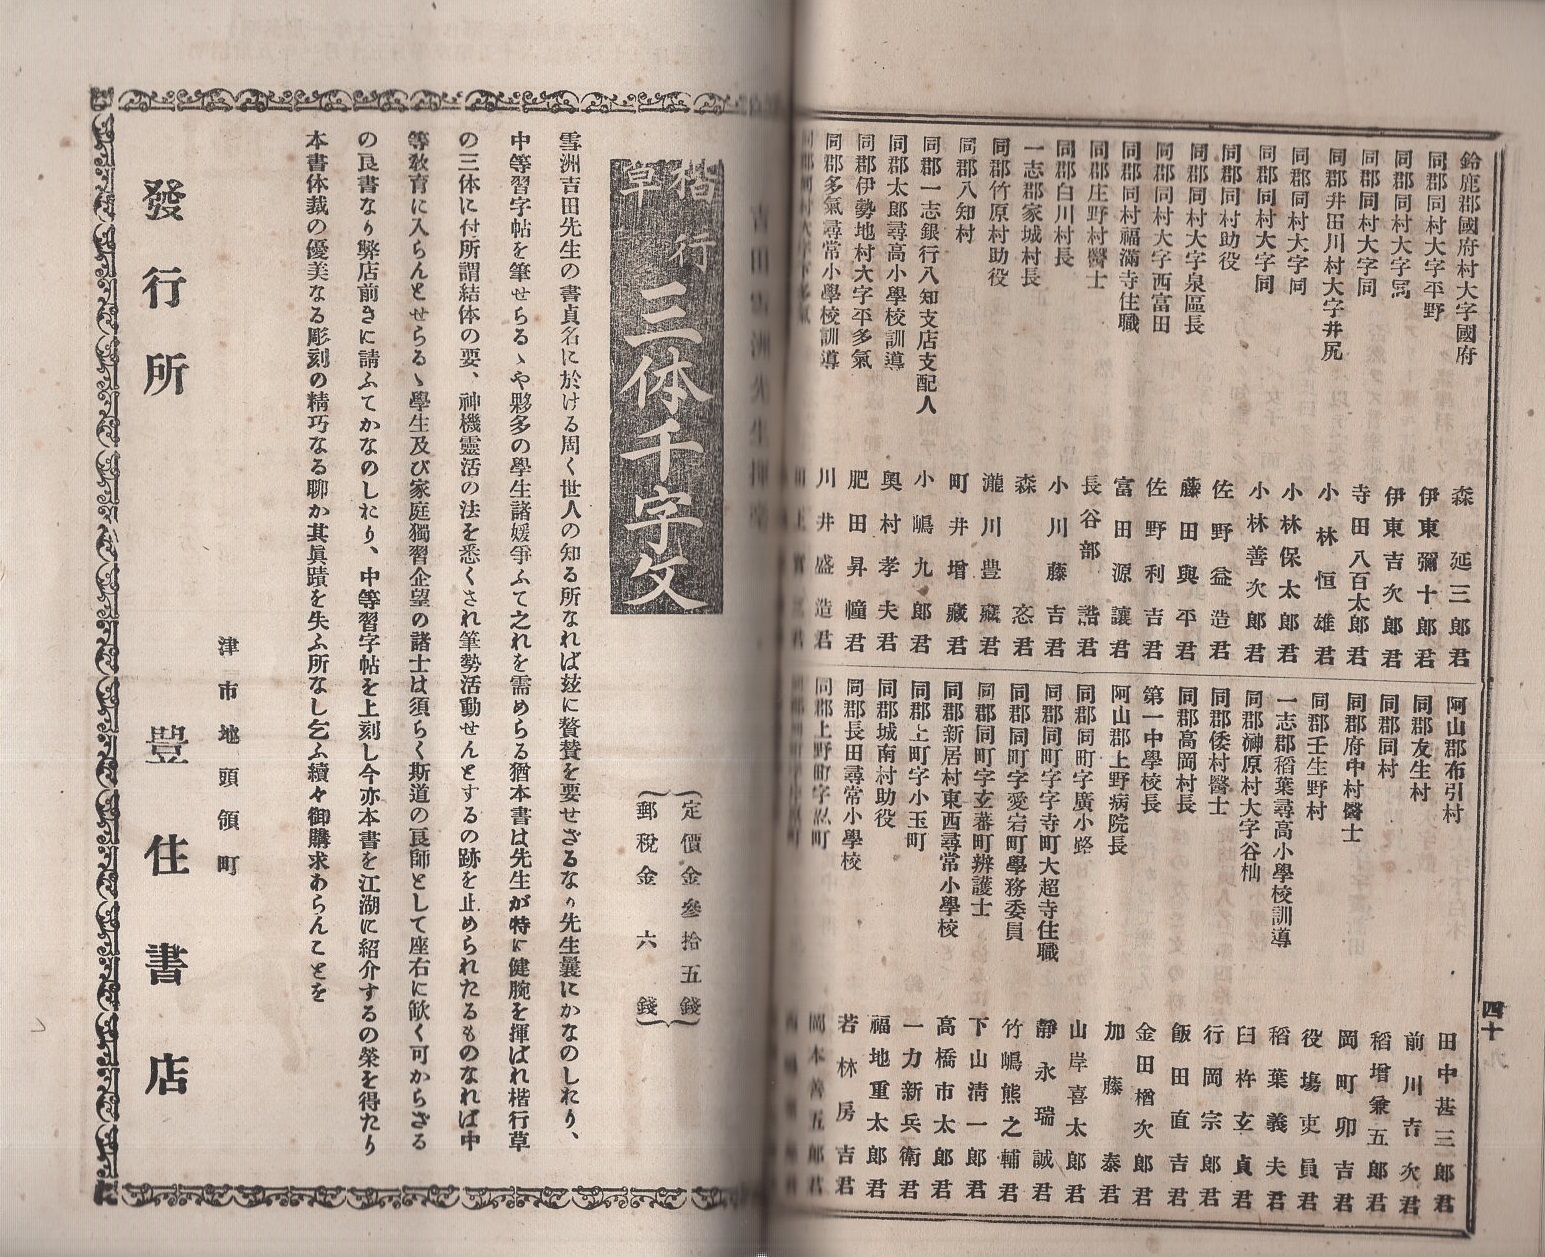 鈴鹿郡國府村大字國府 森延三郎君
同郡同村大字平野 伊東彌十郎君
同郡同村大字 伊東吉次郎君
同郡同村大字同 寺田八百太郎君
同郡井田川村大字井尻 小林恒雄君
同郡同村大字同 小林保太郎君
同郡同村大字同 小林善次郎君
同郡同村助役 佐野益造君
同郡同村大字泉區長 藤田與平君
同郡同村大字西富田 佐野利吉君
同郡同村福滿寺住職 富田源讓君
同郡庄野村醫士 長谷部君
同郡白川村長 小川藤吉君
一志郡家城村長 森君
同郡竹原村助役 瀧川豊藏君
同郡八知村 町井增藏君
同郡一志銀行八知支店支配人 小嶋九郎君
同郡太郎尋高小學校訓導 奥村孝夫君
同郡伊勢地村大字平多氣 肥田昇幢君
同郡多氣尋常小學校訓導 川井盛造君
阿山郡布引村 田中甚三郎君
同郡友生村 前川吉次君
同郡同村 稻增兼五郎君
同郡府中村醫士 岡町卯吉君
同郡壬生野村 役塲吏員君
一志郡稻葉尋高小學校訓導 稻葉義夫君
同郡榊原村大字谷杣 臼杵玄貞君
同郡倭村醫士 行岡宗郎君
同郡高岡村長 飯田直吉君
第一中學校長 金田楢次郎君
阿山郡上野病院長 加藤泰君
同郡同町字廣小路 山岸喜太郎君
同郡同町字字寺町大超寺住職 靜永瑞誠君
同郡同町字愛宕町學務委員 竹嶋熊之輔君
同郡同町字玄蕃町辨護士 下山淸一郎君
同郡新居村東西尋常小學校 高橋市太郎君
同郡上町字小玉町 一力新兵衛君
同郡城南村助役 福地重太郎君
同郡長田尋常小學校 若林房吉君
同郡上野町字忍町 岡本善五郎君
四十
吉田雪洲先生揮毫
楷行草 三体千字文
定價金參拾五錢
郵稅金六錢
雪洲吉田先生の書貞名に於ける周く世人の知る所なれば玆に贅賛を要せざるなり先生曩にかなのしをり、
中等習字帖を筆せらるゝや夥多の學生諸媛爭ふて之れを需めらる猶本書は先生が特に健腕を揮ばれ楷行草
の三体に付所謂結体の要、神機靈活の法を悉くされ筆勢活動せんとするの跡を止められたるものなれば中
等敎育に入らんとせらるゝ學生及び家庭獨習企望の諸士は須らく斯道の良師として座右に歓く可からざる
の良書なり弊店前きに請ふてかなのしをり、中等習字帖を上刻し今亦本書を江湖に紹介するの榮を得たり
本書体裁の優美なる彫刻の精巧なる聊か其眞蹟を失ふ所なし乞ふ續々御購求あらんことを
津市地頭領町
發行所 豊住書店